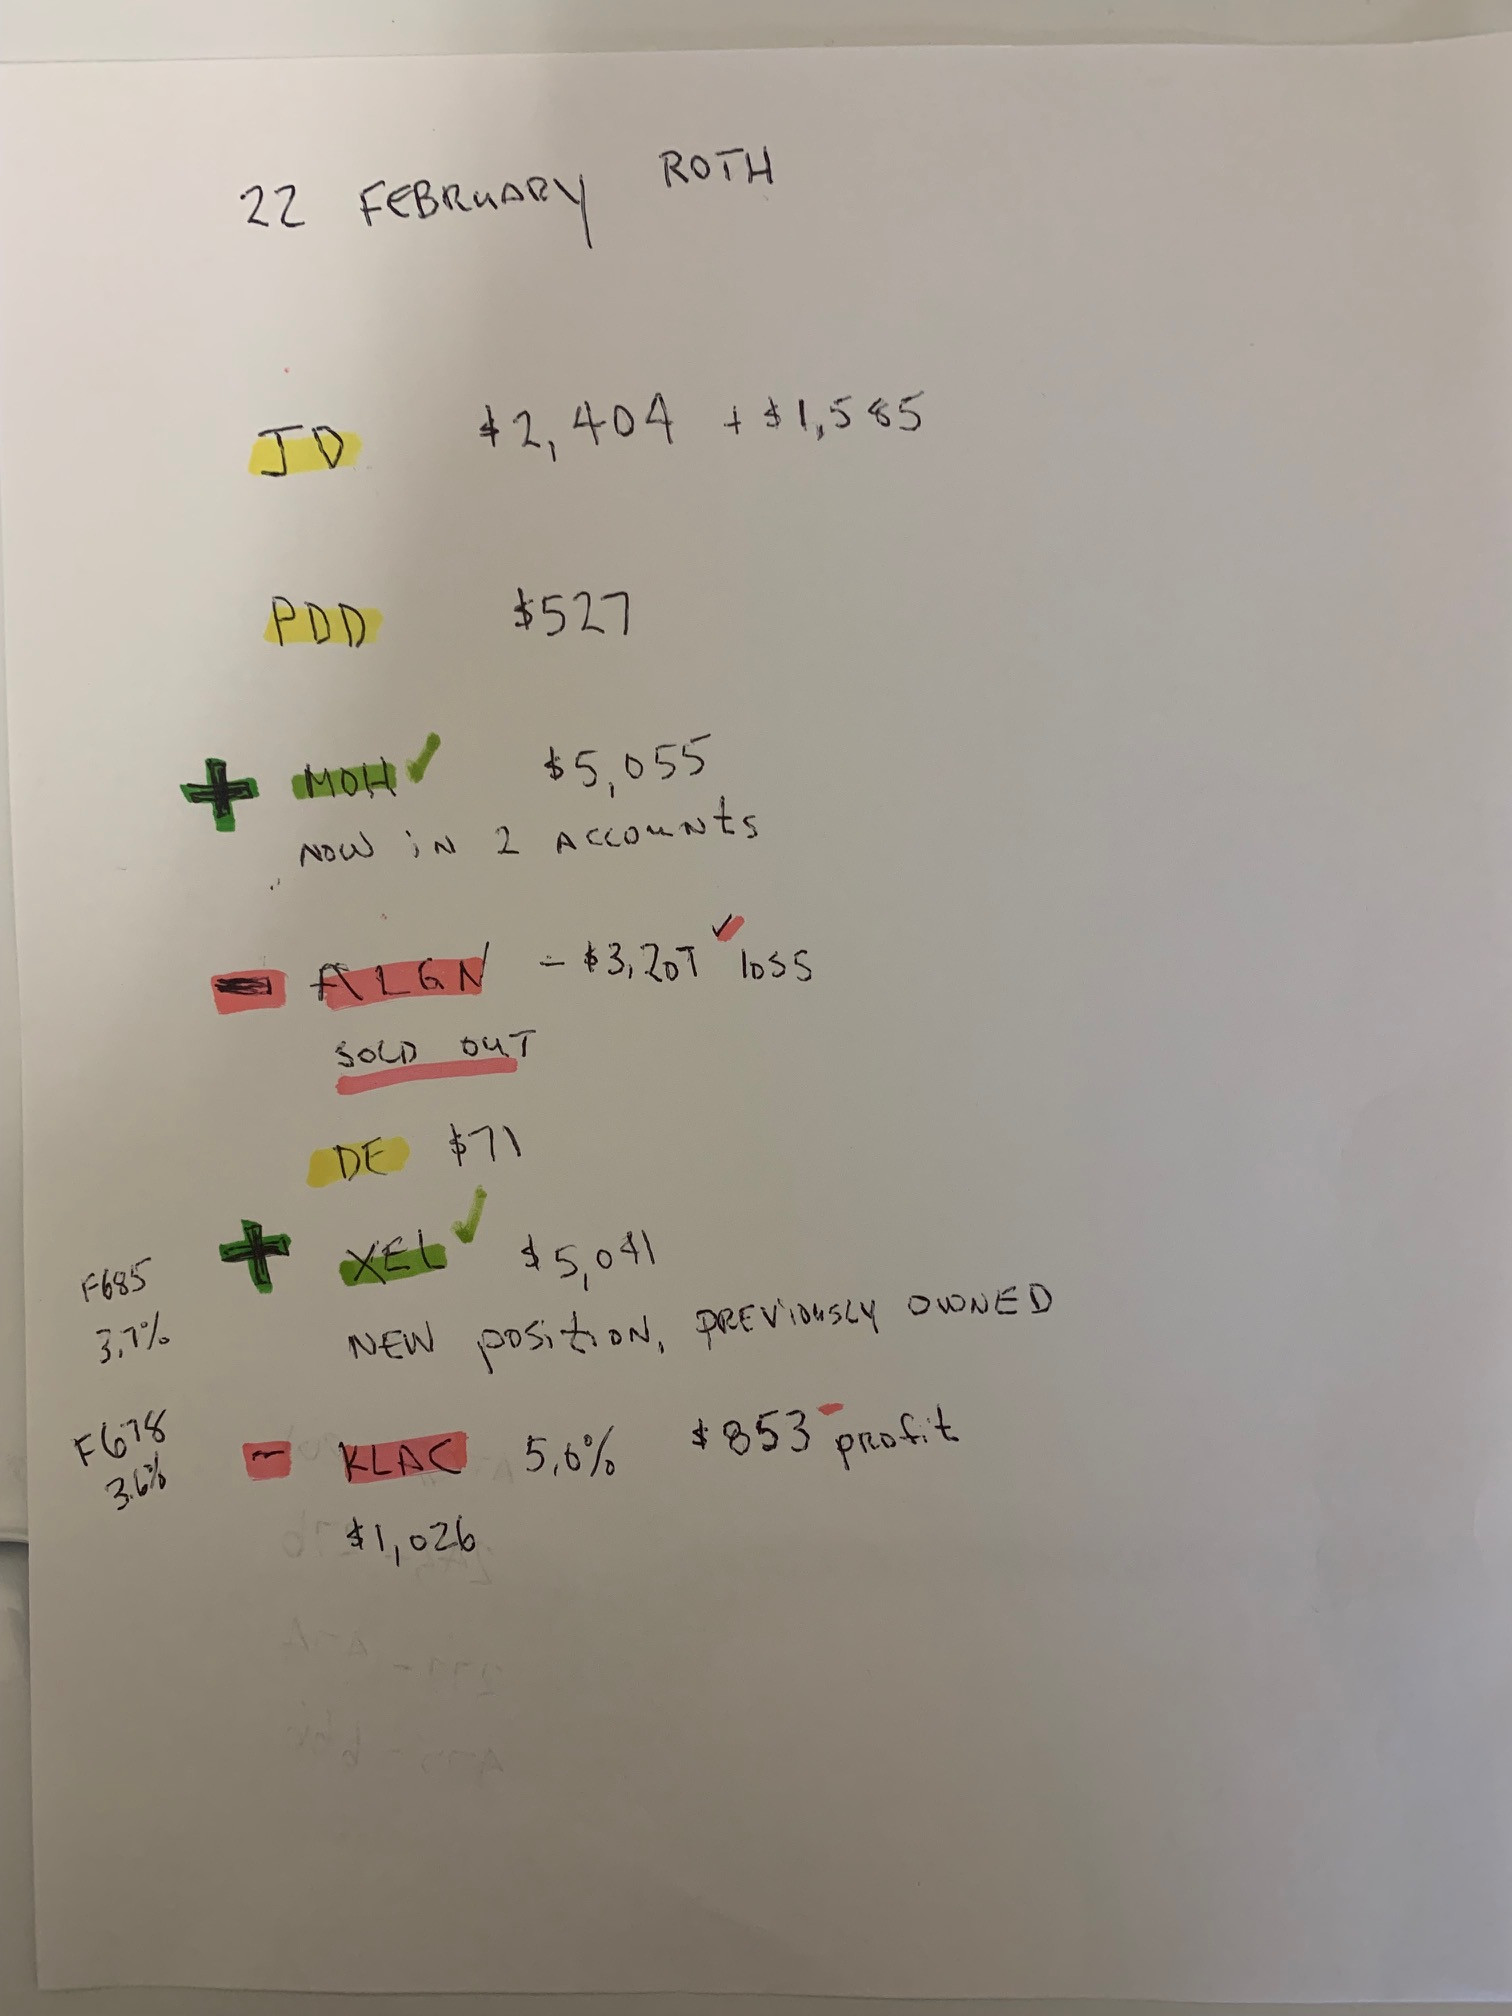 22 FEBRUARY ROTH
JD $2,404 + $1,585
PDD $527
+ MOH ✓ $5,055
NOW IN 2 ACCOUNTS
- ALGN - $3,207 ✓ loss
SOLD OUT
DE $71
+ XEL ✓ $5,041
F685
3.7%
NEW position, PREVIOUSLY OWNED
F678
3.6%
- KLAC 5.6% $853 - profit
$1,026